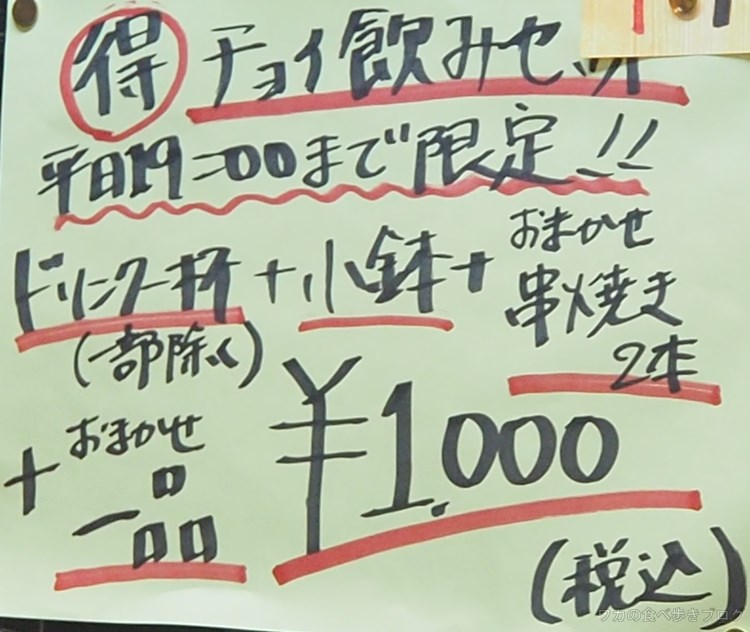 得 チョイ飲みセット
平日19:00まで限定!!
ドリンク一杯+小鉢+おまかせ串焼き2本
(一部除く)
+おまかせ一品
¥1,000
(税込)
ワカの食べ歩きブログ